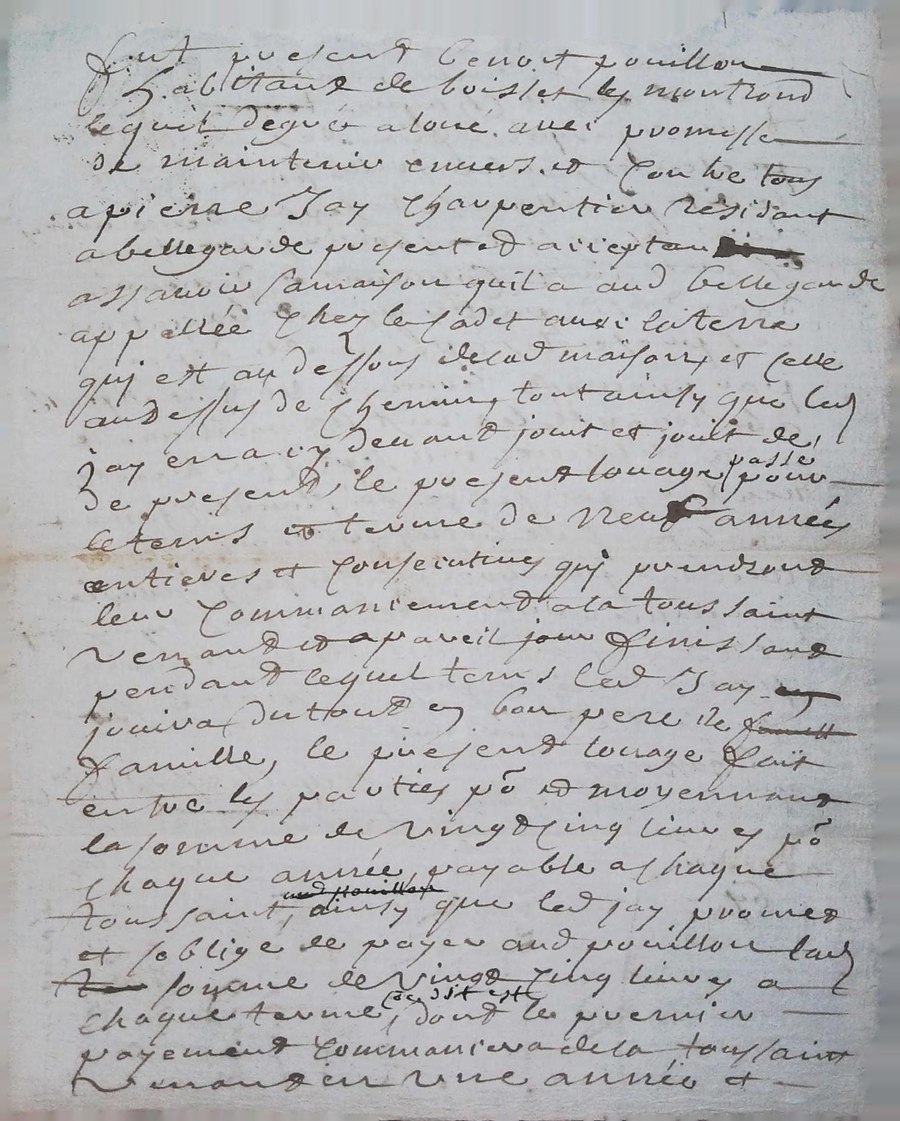 fut present benoit pouillon
habitant de boisset les montrond
lequel degré a loué avec promesse
de maintenir envers et contre tous
a pierre Jay charpentier residant
a bellegarde present et acceptan
assavoir sa maison quil a aud bellegarde
appellée chez le cadet avec la terre
qui est au dessous de lad maison, et celle
au dessus de chemin, tout ainsy que led
jay en a cy devant jouit et jouit de
de present, le present louage passé pour
le tems et terme de neuf années
entieres et consecutives qui prendront
leur commancement a la toussaint
venant et a pareil jour finissant
pendant lequel tems led Jay
jouira du tout en bon pere de famille
famille, le present louage fait
entre les parties po et moyennant
la somme de vingt cinq livres po
chaque année, payable a chaque
toussaint, aud pouillon ainsy que led jay promet
et soblige de payer aud pouillon lad
somme de vingt cinq livres a
chaque terme, co͞e dit est dont le premier
payement commancera de la toussaint
venant en une année et